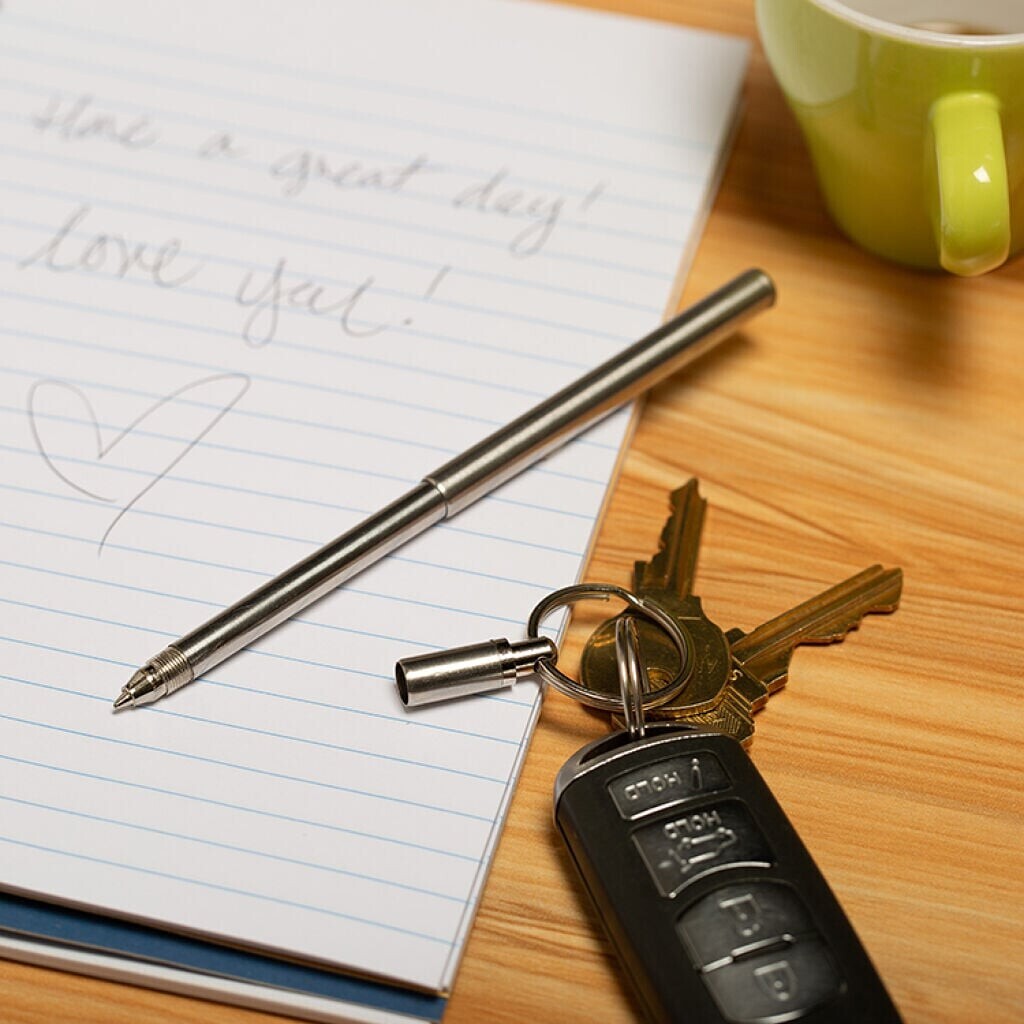 Have a great day!
Love ya!
HOLD
HOLD